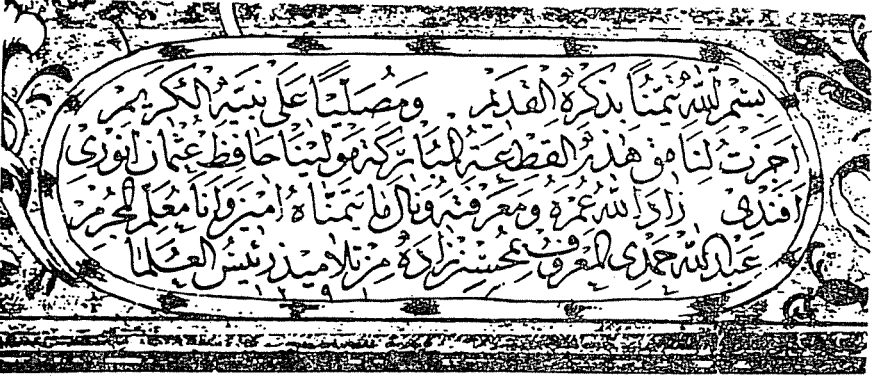 بسم الله تيمنا بذكره القديم ومصليا على نبيه الكريم
اجزت لنامق هذه القطعة المباركة مولينا حافظ عثمان انورى
افندى زاد الله عمره ومعرفته ونال ما يتمناه امين وانا معلم الحرم
عبد الله حمدى المعروف بمحسن زاده من تلاميذ رئيس العلما
١٢٩١